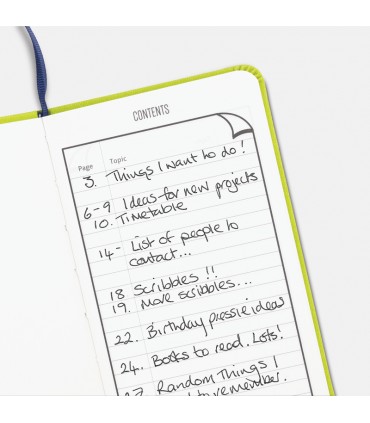 CONTENTS
Page Topic
3. Things I want to do!
6-9 Ideas for new projects
10. Timetable
14- List of people to
contact...
18 Scribbles !!
19. More scribbles...
22. Birthday pressie ideas
24. Books to read. Lists!
27 Random Things I
to remember.